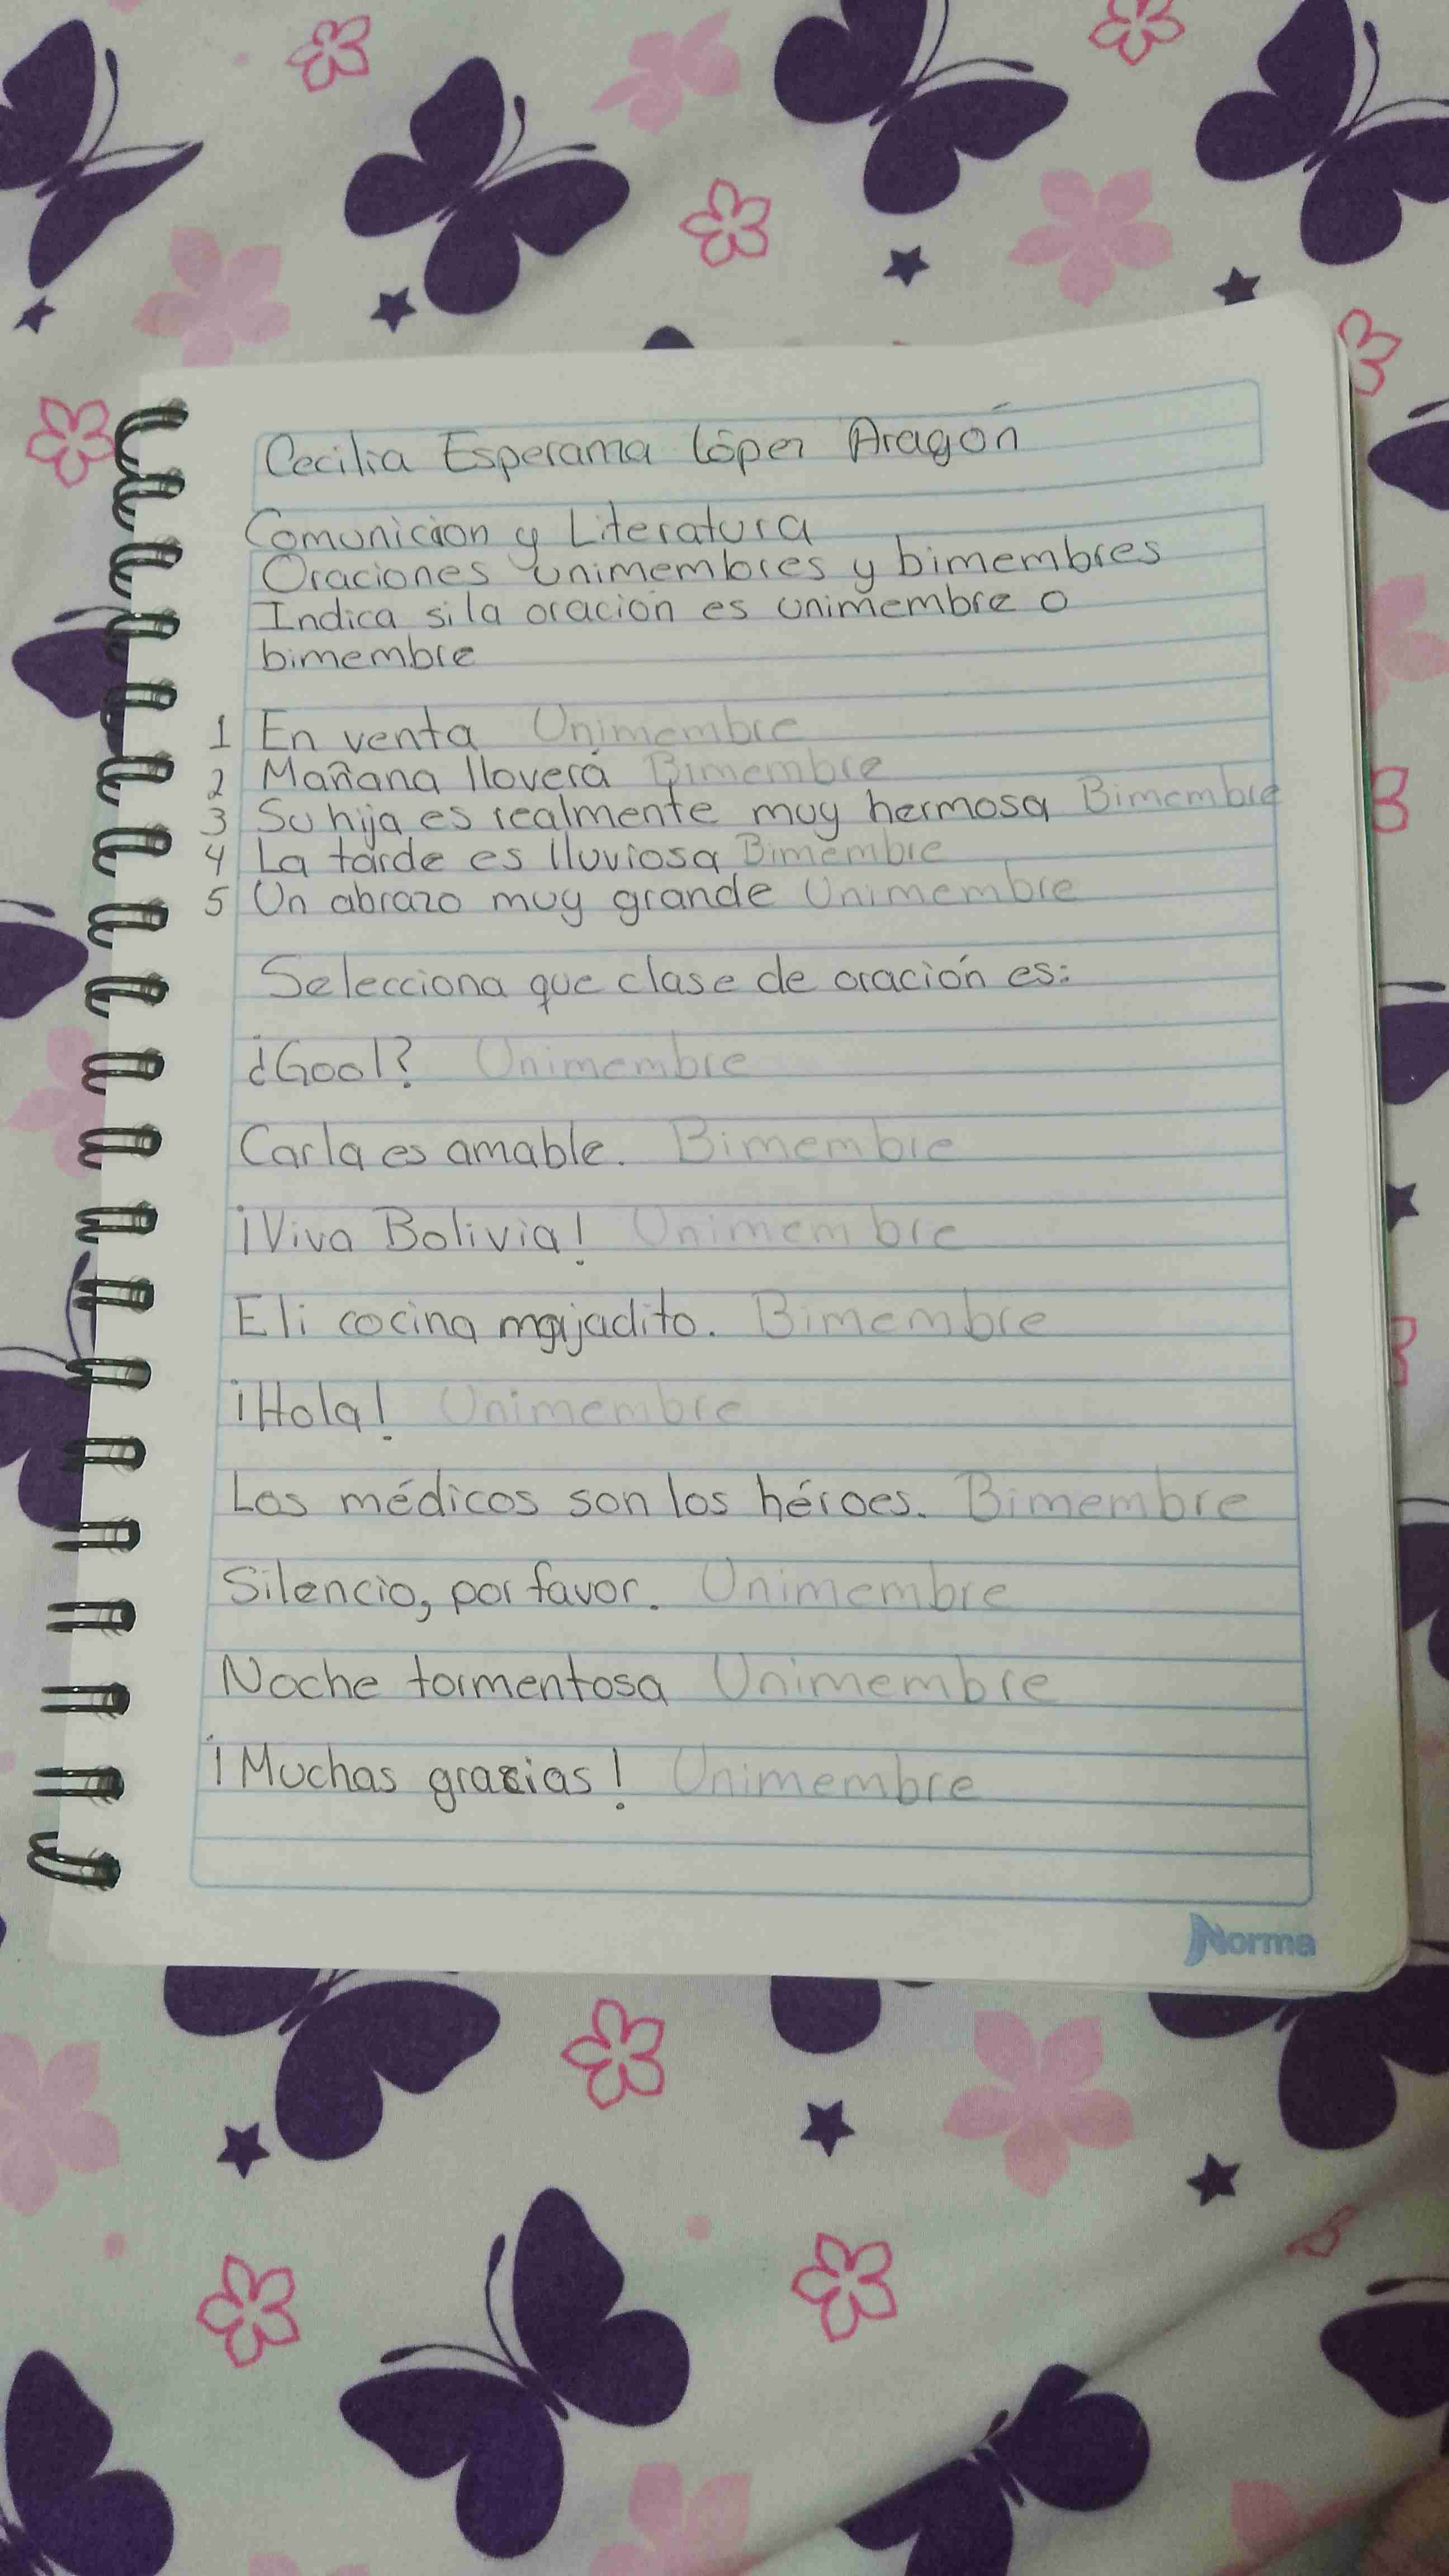 Cecilia Esperanza López Aragón
Comunicion y Literatura
Oraciones unimembres y bimembres
Indica si la oración es unimembre o
bimembre
1 En venta Unimembre
2 Mañana lloverá Bimembre
3 Su hija es realmente muy hermosa Bimembre
4 La tarde es lluviosa Bimembre
5 Un abrazo muy grande Unimembre
Selecciona que clase de oración es:
¿Gool? Unimembre
Carla es amable. Bimembre
¡Viva Bolivia! Unimembre
Eli cocina majadito. Bimembre
¡Hola! Unimembre
Los médicos son los héroes. Bimembre
Silencio, por favor. Unimembre
Noche tormentosa Unimembre
¡Muchas gracias! Unimembre
Norma